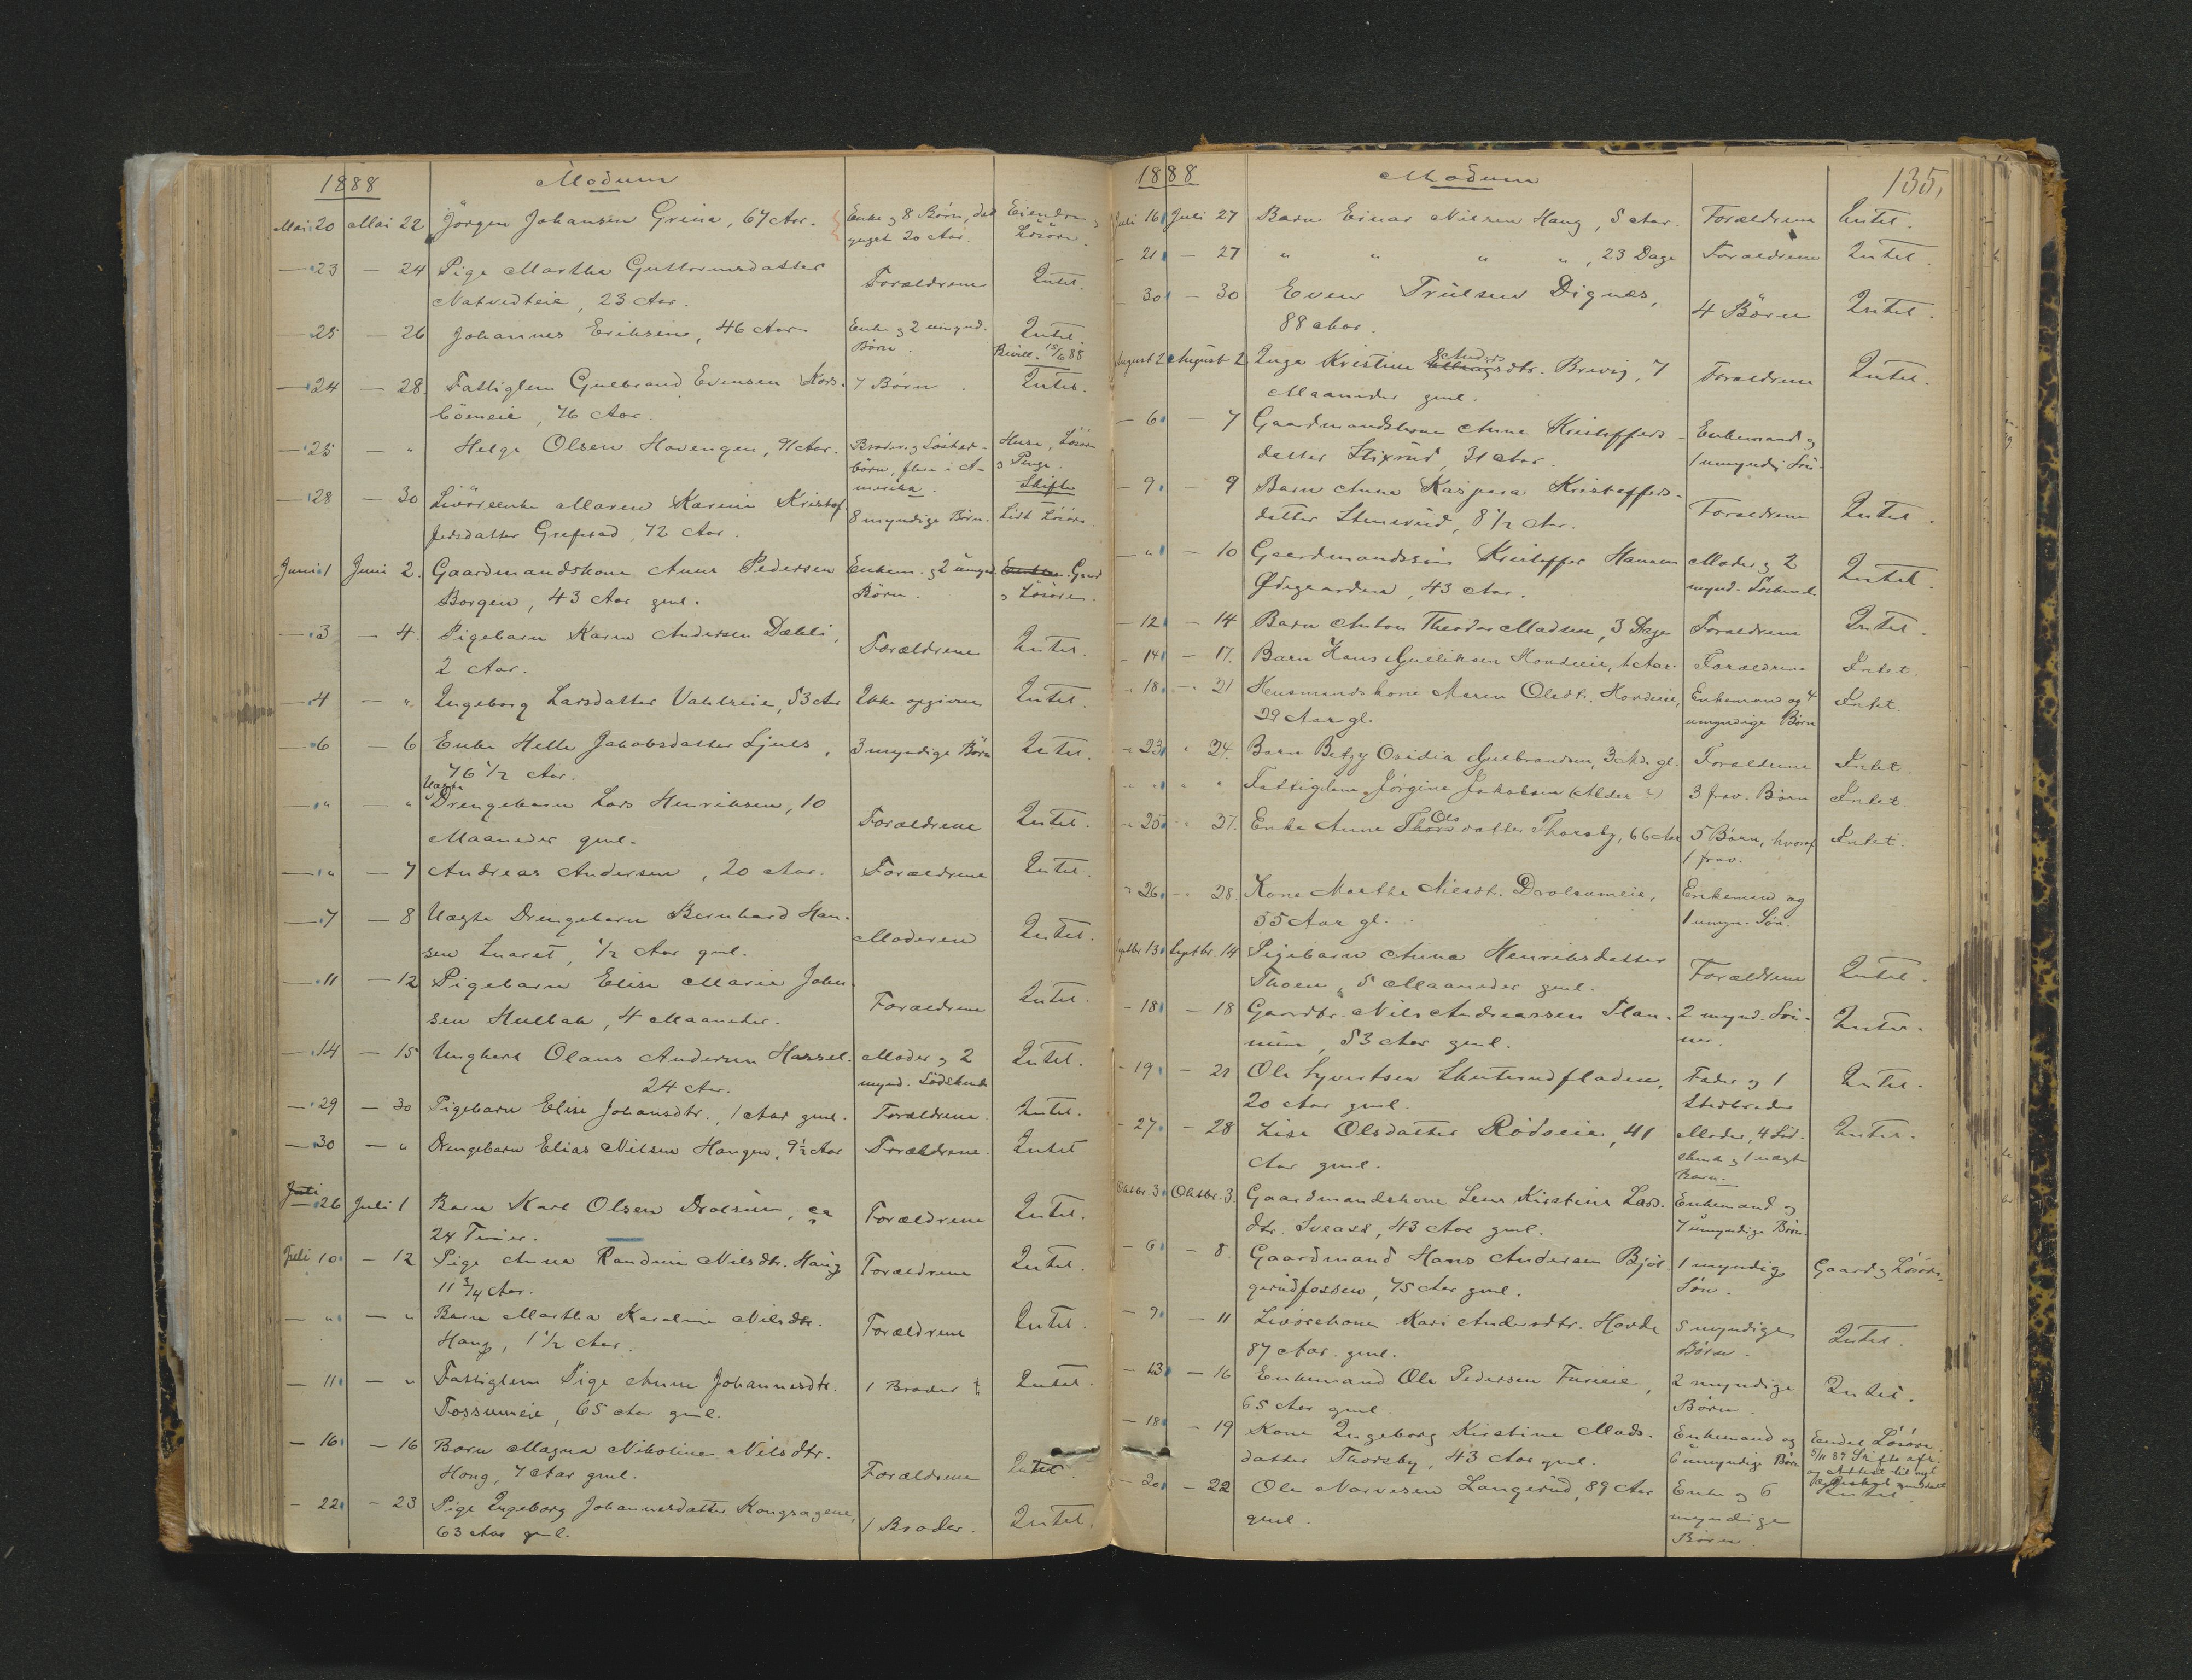 1888 Modum
Mai 20 Mai 22 Jörgen Johansen Grina, 67 Aar. Enke og 8 Börn, det Eiendom og
yngst 20 Aar. Lösöre.
— 23 — 24 Pige Martha Guttormsdatter Forældrene Intet.
Natvedteie, 23 Aar.
— 25 — 26 Johannes Eriksen, 46 Aar Enke og 2 umynd. Intet.
Börn. Bevill. 15/6 88
— 24 — 28. Fattiglem Gulbrand Evensen Kors- 7 Börn. Intet.
böeneie, 76 Aar.
— 25 — " Helge Olsen Hovengen, 91 Aar. Broder- og Söster- Huse, Lösöre
börn, flere i A- og Penge.
merika. Skifte
— 28 — 30 Livöreenke Maren Karine Kristof 8 myndige Börn. Lidt Lösöre.
fersdatter Grefsrud, 72 Aar.
Juni 1 Juni 2. Gaardmandskone Anne Pedersen Enkem. og 2 umynd. Gaard
Borgen, 43 Aar gml. Börn. og Lösöre.
— 3 — 4. Pigebarn Karen Andersen Dæhli, Forældrene Intet.
2 Aar.
— 4 — " Ingeborg Larsdatter Vahlseie, 53 Aar Ikke opgivne Intet.
— 6 — 6 Enke Helle Jakobsdatter Ljnes, 3 myndige Börn Intet.
76 1/2 Aar.
Uægte
— " — " Drengebarn Lars Henriksen, 10 Forældrene Intet.
Maaneder gml.
— " — 7 Andreas Andersen, 20 Aar. Forældrene Intet.
— 7 — 8 Uægte Drengebarn Bernhard Han- Moderen Intet.
sen Snaret, 1/2 Aar gml.
— 11 — 12 Pigebarn Elise Marie John- Forældrene Intet.
sen Hulbak, 4 Maaneder.
— 14 — 15 Ungkarl Olaus Andersen Hassel. Moder og 2 Intet.
24 Aar. mynd. Södskende
— 29 — 30 Pigebarn Elise Johansdtr., 1 Aar gml. Forældrene. Intet.
— 30 — " Drengebarn Elias Nilsen Haugen, 9 1/2 Aar Forældrene. Intet
Juli
— 26 Juli 1 Barn Karl Olsen Drolsum, ca Forældrene Intet.
24 Timer.
Juli 10 — 12 Pige Anna Randine Nilsdtr. Haug Forældrene Intet.
11 3/4 Aar.
— " — " Barn Martha Karoline Nilsdtr. Forældrene Intet.
Haug, 1 1/2 Aar.
— 11 — " Fattiglem Pige Anne Johannesdtr. 1 Broder Intet.
Fossumeie, 65 Aar gml.
— 16 — 16 Barn Magna Nikoline Nilsdtr. Forældrene Intet.
Haug, 7 Aar gml.
— 22 — 23 Pige Ingeborg Johannesdatter Kongsagene, 1 Broder. Intet.
63 Aar gml.
1888 Modum 135,
Juli 16 Juli 27 Barn Einar Nilsen Haug, 5 Aar. Forældrene Intet.
— 21 — 27 " " " ", 23 Dage Forældrene Intet
— 30 — 30 Even Trulsen Dignæs, 4 Börn Intet.
88 Aar.
August 2 August 2 Inga Kristine dtr. Brevig, 7 Forældrene Intet.
Maaneder gml.
— 6 — 7 Gaardmandskone Anne Kristoffers- Enkemand og
datter Stixrud, 31 Aar. 1 umyndig Sön.
— 9 — 9 Barn Anna Kaspara Kristoffers- Forældrene Intet.
datter Stensrud, 8 1/2 Aar.
— " — 10 Gaardmandssön Kristoffer Hansen Moder og 2 Intet.
Ödegaarden, 43 Aar. mynd. Söskende
— 12 — 14 Barn Anton Theodor Madsen, 3 Dage Forældrene Intet.
— 14 — 17. Barn Hans Gulliksen Hovdeeie, 1 Aar. Forældrene Intet.
— 18 — 21 Husmandskone Maren Olsdtr. Hovdeeie, Enkemand og 4 Intet.
29 Aar gl. umyndige Börn
— 23 " 24. Barn Betzy Ovidia Gulbrandsen, 3 Md. gl. Forældrene Intet.
— " " " Fattiglem Jörgine Jakobsen (Alder ?) 3 frav. Börn Intet.
Ols
— 25 " 27. Enke Anne Thorsdatter Thorsby, 66 Aar 5 Börn, hvoraf Intet.
1 frav.
— 26 — 28. Kone Marthe Nilsdt. Drolsumeie, Enkemand og
55 Aar gl. 1 umyn. Sön.
Septbr 13 Septbr. 14 Pigebarn Anna Henriksdatter Forældrene Intet.
Thoen, 5 Maaneder gml.
— 18 — 18 Gaardbr. Nils Andreassen Stan- 2 mynd. Sön- Intet.
mum, 53 Aar gml. ner.
— 19 — 21 Ole Syvertsen Skuterudfladen, Fader og 1 Intet.
20 Aar gml. Stedbroder
— 27 — 28 Lise Olsdatter Rödseie, 41 Moder, 4 Söd- Intet.
Aar gml. skende og 1 uægte
Barn.
Oktbr. 3 Oktbr. 3. Gaardmandskone Lena Kirstine Lars- Enkemand og
dtr. Sveaas, 43 Aar gml. 7 umyndige Börn.
— 6 — 8. Gaardmand Hans Andersen Bjöl- 1 myndig Gaard og Lösöre.
gerudfossen, 75 Aar gml. Sön.
— 9 — 11 Livörekone Kari Andersdtr. Hovde 5 myndige Intet.
87 Aar. gml. Börn.
— 13 — 16 Enkemand Ole Pedersen Furueie, 2 myndige Intet.
65 Aar gml. Börn.
— 18 — 19 Kone Ingeborg Kirstine Mads- Enkemand og Endel Lösöre.
datter Thorsby, 43 Aar gml. 6 umyndige Börn 5/11 89 Skifte afh.
og Attest til nyt
— 20 — 22 Ole Narvesen Langerud, 89 Aar Enke og 6 Intet
gml. myndige
Börn.